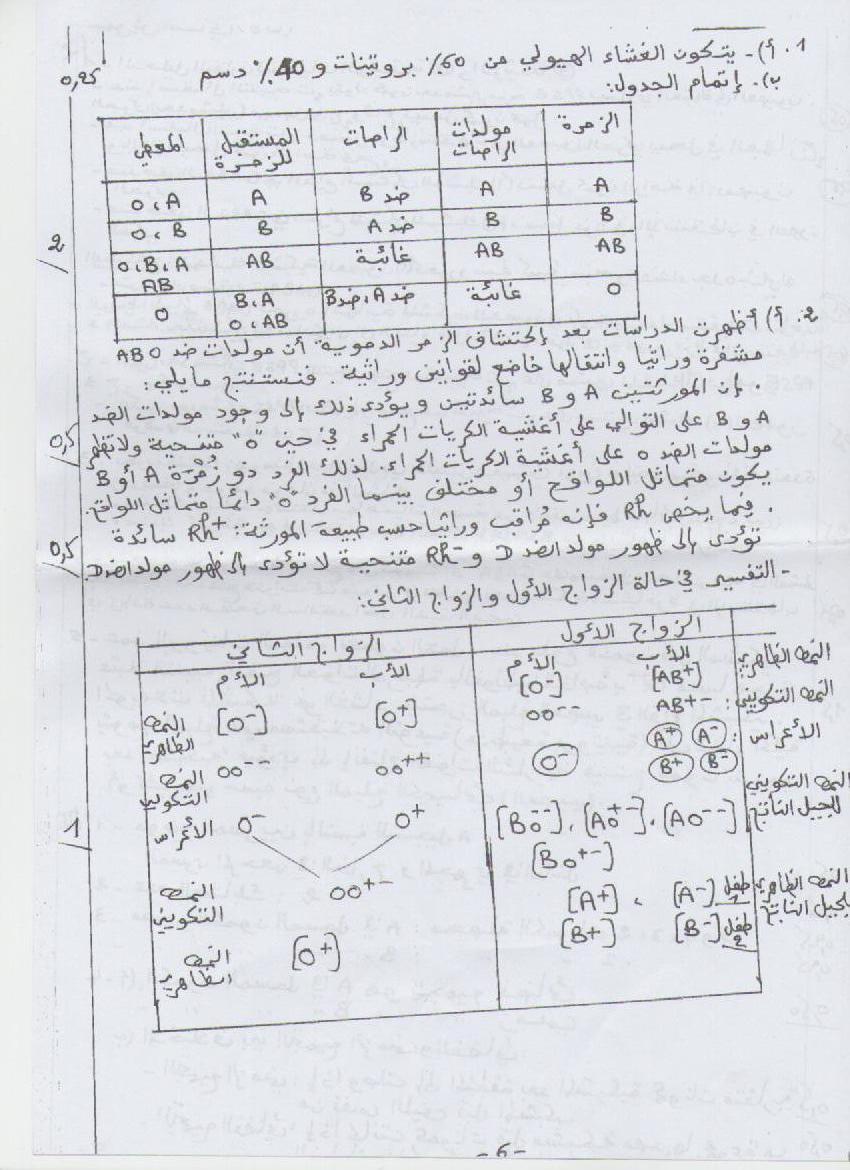 1. أ) - يتكون الغشاء الهيولي من 60% بروتينات و 40% دسم
0,25
ب). إتمام الجدول:
الزمرة | مولدات الراصات | الراصات | المستقبل للزمرة | المعطي
A | A | ضد B | A | A، O
B | B | ضد A | B | B، O
2
AB | AB | غائبة | AB | A، B، O AB
O | غائبة | ضد A، ضد B | A، B O، AB | O
2. أ) أظهرت الدراسات بعد إكتشاف الزمر الدموية أن مولدات ضد ABO
مشفرة وراثيا وانتقالها خاضع لقوانين وراثية. فنستنتج مايلي:
. إن المورثتين A و B سائدتين ويؤدي ذلك إلى وجود مولدات الضد
A و B على التوالي على أغشية الكريات الحمراء في حين "o" متنحية ولا تظهر
0,5
مولدات الضد o على أغشية الكريات الحمراء. لذلك الفرد ذو زمرة A أو B
يكون متماثل اللواقح أو مختلف بينما الفرد "o" دائما متماثل اللواقح.
. فيما يخص Rh فإنه مراقب وراثيا حسب طبيعة المورثة: Rh+ سائدة
0,5
تؤدي إلى ظهور مولد الضد D و Rh- متنحية لا تؤدي إلى ظهور مولد الضد D
- التفسير في حالة الزواج الأول والزواج الثاني:
الزواج الأول
النمط الظاهري: الأب [AB+] الأم [O-]
النمط التكويني: AB+- oo--
الأعراس: A+ A- B+ B- O-
النمط التكويني للجيل الناتج [Ao--]، [Ao+-]، [Bo--]
[Bo+-]
النمط الظاهري للجيل الناتج طفل 1 [A-]، [A+]
طفل 2 [B-] [B+]
الزواج الثاني
الأب الأم
النمط الظاهري [O+] [O-]
النمط التكويني oo++ oo--
الأعراس O+ O-
1
النمط التكويني oo+-
النمط الظاهري [O+]
-6-